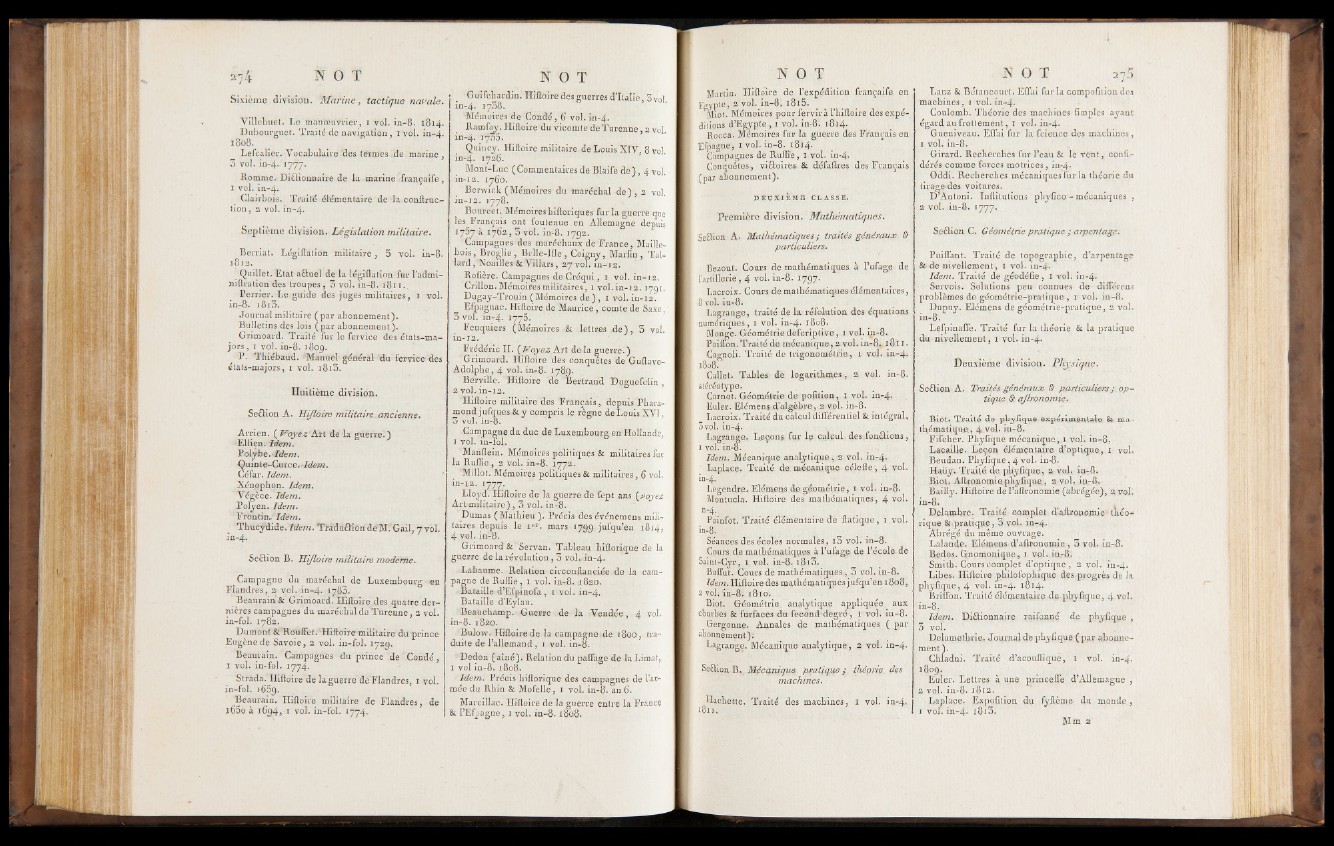 274 N O T
Sixième division. Marine, tactique navale.
Villehuet. Le manœuvrier, 1 vol. in-8. 1814.
Dubourguet. Traité de navigation, 1 vol. in-4.
1808.
Lefcalier. Vocabulaire des termes de marine,
3 vol. in-4. 1777.
Romme. Dictionnaire de la marine françaife,
1 vol. in-4.
Clairbois. Traité élémentaire de la conftruc-
tion, 2 vol. in-4.
Septième division. Législation militaire.
Berriat. Légiflation militaire, 5 vol. in-8.
1812.
Quillet. Etat actuel de la légiflation fur l'admi-
niftration des troupes, 3 vol. in-8. 1811.
Perrier. Le guide des juges militaires, 1 vol.
in-8. 1813.
Journal militaire (par abonnement).
Bulletins des lois (par abonnement).
Grimoard. Traité fur le fervice des états-ma-
jors, 1 vol. in-8. 1809.
P. Thiébaud. Manuel général du fervice des
états-majors, 1 vol. 1813.
Huitième division.
Section A. Hiftoire militaire ancienne.
Arrien. (Voyez Art de la guerre.)
Ellien. Idem.
Polybe. Idem.
Quinte-Curce. Idem.
Céfar. Idem.
Xénophon. Idem.
Végèce. Idem.
Polyen. Idem.
Frontin. Idem.
Thucydide. Idem. Traduction de M. Gail, 7 vol.
in-4.
Section B. Hiftoire militaire moderne.
Campagne du maréchal de Luxembourg en
Flandres, 2 vol. in-4. 1783.
Beaurain & Grimoard. Hiftoire des quatre der-
nières campagnes du maréchal de Turenne, 2 vol.
in-fol. 1782.
Dumont & Rouffet. Hiftoire militaire du prince
Eugène de Savoie, 2 vol. in-fol. 1729.
Beaurain. Campagnes du prince de Condé,
1 vol. in-fol. 1774.
Strada. Hiftoire de la guerre de Flandres, 1 vol.
in-fol. 1659.
Beaurain. Hiftoire militaire de Flandres, de
1650 à 1694, 1 vol. in-fol. 1774.
N O T
Guifchardin. Hiftoire des guerres d'Italie, 3 vol.
in-4. 1738.
Mémoires de Condé, 6 vol. in-4.
Ramfay. Hiftoire du vicomte de Turenne, 2 vol.
in-4. 1735.
Quincy. Hiftoire militaire de Louis XIV, 8 vol.
in-4. 1726.
Mont-Luc (Commentaires de Blaife de), 4 vol.
in-12. 1760.
Berwick (Mémoires du maréchal de), 2 vol.
in-12. 1778.
Bourcet. Mémoires hiftoriques fur la guerre que
les Français ont foutenue en Allemagne depuis
1757 à 1762, 3 vol. in-8. 1792.
Campagnes des maréchaux de France, Maille-
bois, Broglie, Belle-Ifle, Coigny, Marfin, Tal-
lard, Noailles & Villars, 27 vol. in-12.
Rofière. Campagnes de Créqui, 1 vol. in-12.
Crillon. Mémoires militaires, 1 vol. in-12. 1791.
Dugay-Trouin (Mémoires de), 1 vol. in-12.
Efpagnac. Hiftoire de Maurice, comte de Saxe,
3 vol. in-4. 1775.
Feuquiers (Mémoires & lettres de), 3 vol.
in-12.
Frédéric II. (Voyez Art de la guerre.)
Grimoard. Hiftoire des conquêtes de Guftave-
Adolphe, 4 vol. in-8. 1789.
Berville. Hiftoire de Bertrand Duguefclin,
2 vol. in-12.
Hiftoire militaire des Français, depuis Phara-
mond jufques & y compris le règne de Louis XVI,
3 vol. in-8.
Campagne du duc de Luxembourg en Hollande,
1 vol. in-fol.
Manftein. Mémoires politiques & militaires fur
la Ruffie, 2 vol. in-8. 1772.
Millot. Mémoires politiques & militaires, 6 vol.
in-12. 1777.
Lloyd. Hiftoire de la guerre de fept ans (voyez
Art militaire), 3 vol. in-8.
Dumas (Mathieu). Précis des événemens mili-
taires depuis le 1er. mars 1799 jufqu'en 1814,
4 vol. in-8.
Grimoard & Servan. Tableau hiftorique de la
guerre de la révolution, 3 vol. in-4.
Labaume. Relation circonftanciée de la cam-
pagne de Ruffie, 1 vol. in-8. 1820.
Bataille d'Efpinofa, 1 vol. in-4.
Bataille d'Eylau.
Beauchamp. Guerre de la Vendée, 4 vol.
in-8. 1820.
Bulow. Hiftoire de la campagne de 1800, tra-
duite de l'allemand, 1 vol. in-8.
Dedon (aîné). Relation du paffage de la Limat,
1 vol in-8. 1808.
Idem. Précis hiftorique des campagnes de l'ar-
mée du Rhin & Mofelle, 1 vol. in-8. an 6.
Marcillac. Hiftoire de la guerre entre la France
& l'Efpagne, 1 vol. in-8. 1808.
N O T
Martin. Hiftoire de l'expédition françaife en
Egypte, 2 vol. in-8. 1815.
Miot. Mémoires pour fervir à l'hiftoire des expé-
ditions d'Egypte, 1 vol. in-8. 1814.
Rocca. Mémoires fur la guerre des Français en
Efpagne, 1 vol. in-8. 1814.
Campagnes de Ruffie, 1 vol. in-4.
Conquêtes, victoires & défaftres des Français
(par abonnement).
DEUXIÈME CLASSE.
Première division. Mathématiques.
Section A. Mathématiques; traités généraux &
particuliers.
Bezout. Cours de mathématiques à l'ufage de
l'artillerie, 4 vol. in-8. 1797.
Lacroix. Cours de mathématiques élémentaires,
8 vol. in-8.
Lagrange, traité de la réfolution des équations
numériques, 1 vol. in-4. 1808.
Monge. Géométrie defcriptive, 1 vol. in-8.
Poiffon. Traité de mécanique, 2 vol. in-8. 1811.
Cagnoli. Traité de trigonométrie, 1 vol. in-4.
1808.
Callet. Tables de logarithmes, 2 vol. in-8.
stéréotype.
Carnot. Géométrie de pofition, 1 vol. in-4.
Euler. Elémens d'algèbre, 2 vol. in-8.
Lacroix. Traité du calcul différentiel & intégral,
3 vol. in-4.
Lagrange. Leçons fur le calcul des fonctions,
1 vol. in-8.
Idem. Mécanique analytique, 2 vol. in-4.
Laplace. Traité de mécanique célefte, 4 vol.
in-4.
Legendre. Elémens de géométrie, 1 vol. in-8.
Montucla. Hiftoire des mathématiques, 4 vol.
n-4.
Poinfot. Traité élémentaire de ftatique, 1 vol.
in-8.
Séances des écoles normales, 13 vol. in-8.
Cours de mathématiques à l'ufage de l'école de
Saint-Cyr, 1 vol. in-8. 1813.
Boffut. Cours de mathématiques, 3 vol. in-8.
Idem. Hiftoire des mathématiques jufqu'en 1808,
2 vol. in-8. 1810.
Biot. Géométrie analytique appliquée aux
courbes & furfaces du fecond degré, 1 vol. in-8.
Gergonne. Annales de mathématiques (par
abonnement).
Lagrange. Mécanique analytique, 2 vol. in-4.
Section B. Mécanique pratique; théorie des
machines.
Hachette. Traité des machines, 1 vol. in-4.
1811.
N O T 275
Lanz & Bétancourt. Effai fur la compofition des
machines, 1 vol. in-4.
Coulomb. Théorie des machines fimples ayant
égard au frottement, 1 vol. in-4.
Gueniveau. Effai fur la fcience des machines,
1 vol. in-8.
Girard. Recherches fur l'eau & le vent, confi-
dérés comme forces motrices, in-4.
Oddi. Recherches mécaniques fur la théorie du
tirage des voitures.
D'Antoni. Inftitutions phyfico-mécaniques,
2 vol. in-8. 1777.
Section C. Géométrie pratique; arpentage.
Puiffant. Traité de topographie, d'arpentage
& de nivellement, 1 vol. in-4.
Idem. Traité de géodéfie, 1 vol. in-4.
Servois. Solutions peu connues de différens
problèmes de géométrie-pratique, 1 vol. in-8.
Dupuy. Elémens de géométrie-pratique, 2 vol.
in-8.
Lefpinaffe. Traité fur la théorie & la pratique
du nivellement, 1 vol. in-4.
Deuxième division. Phyfique.
Section A. Traités généraux & particuliers; op-
tique & aftronomie.
Biot. Traité de phyfique expérimentale & ma-
thématique, 4 vol. in-8.
Fifcher. Phyfique mécanique, 1 vol. in-8.
Lacaille. Leçon élémentaire d'optique, 1 vol.
Beudan. Phyfique, 4 vol. in-8.
Haüy. Traité de phyfique, 2 vol. in-8.
Biot. Aftronomie phyfique, 2 vol. in-8.
Bailly. Hiftoire de l'aftronomie (abrégée), 2 vol.
in-8.
Delambre. Traité complet d'aftronomie théo-
rique & pratique, 3 vol. in-4.
Abrégé du même ouvrage.
Lalande. Elémens d'aftronomie, 3 vol. in-8.
Bedos. Gnomonique, 1 vol. in-8.
Smith. Cours complet d'optique, 2 vol. in-4.
Libes. Hiftoire philofophique des progrès de la
phyfique, 4 vol. in-4. 1814.
Briffon. Traité élémentaire de phyfique, 4 vol.
in-8.
Idem. Dictionnaire raifonné de phyfique,
3 vol.
Delamethrie. Journal de phyfique (par abonne-
ment).
Chladni. Traité d'acouftique, 1 vol. in-4.
1809.
Euler. Lettres à une princeffe d'Allemagne,
2 vol. in-8. 1812.
Laplace. Expofition du fyftème du monde,
1 vol. in-4. 1813.
Mm 2